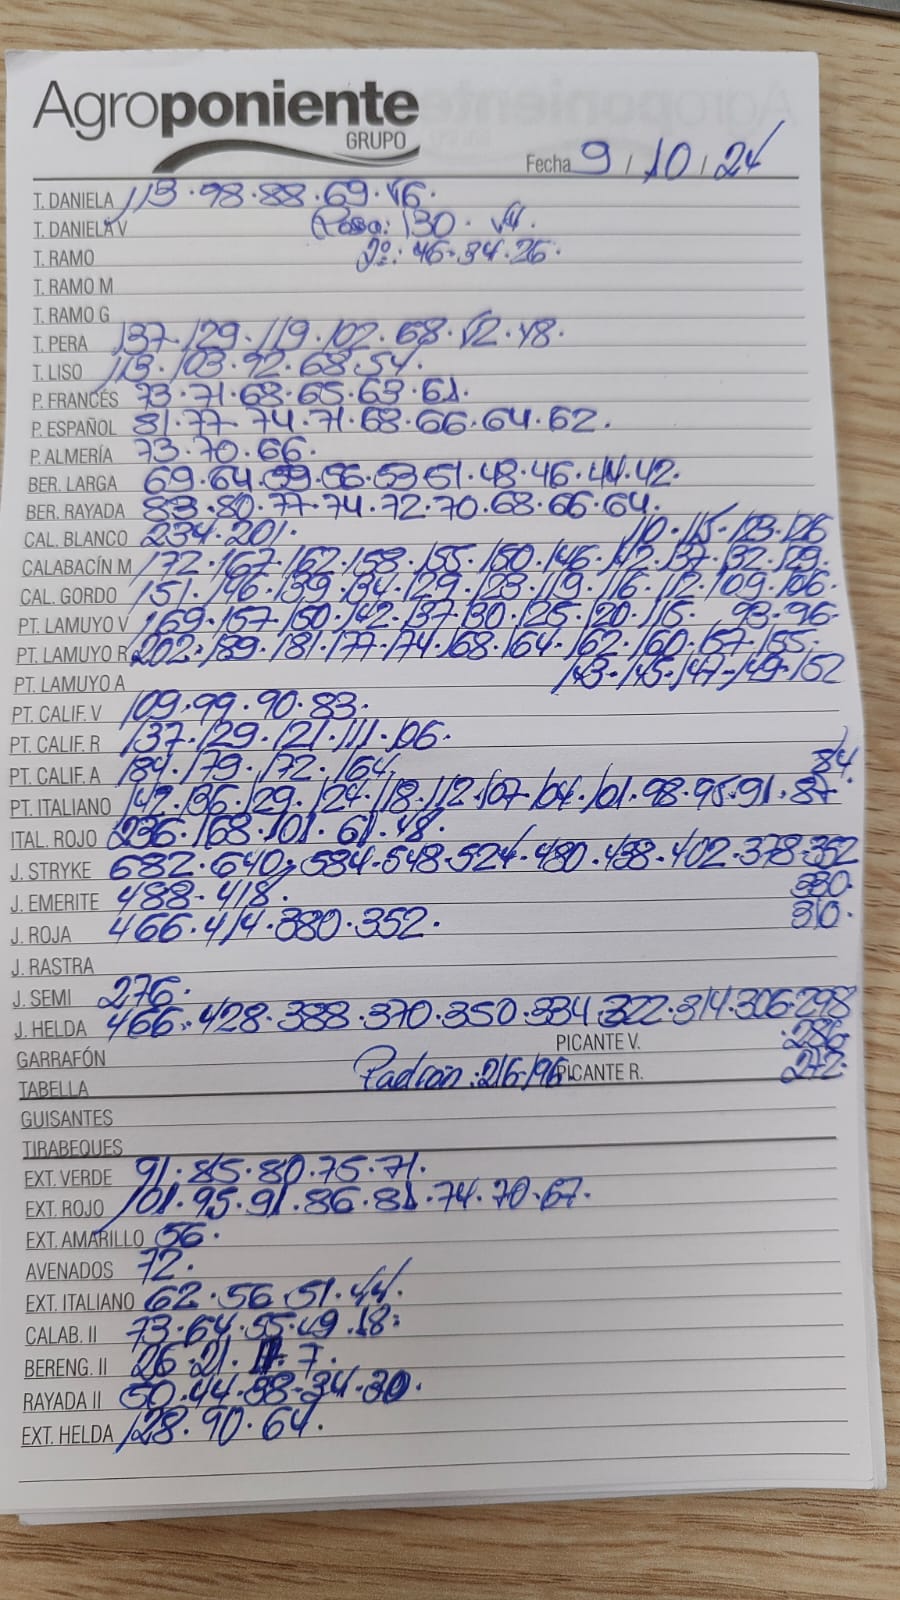 Agroponiente
GRUPO
Fecha 9 / 10 / 24
T. DANIELA 113 · 98 · 88 · 69 · 
T. DANIELA V Rosa: 130 · 
T. RAMO 2º: 46 · 34 · 26 ·
T. RAMO M
T. RAMO G
T. PERA 137 · 129 · 119 · 102 · 68 · 
T. LISO 113 · 103 · 92 · 68 · 54 ·
P. FRANCÉS 73 · 71 · 68 · 65 · 63 · 61 ·
P. ESPAÑOL 81 · 77 · 74 · 71 · 68 · 66 · 64 · 62 ·
P. ALMERÍA 73 · 70 · 66 ·
BER. LARGA 69 · 64 · 59 · 56 · 53 · 51 · 48 · 46 · 44 · 42 ·
BER. RAYADA 83 · 80 · 77 · 74 · 72 · 70 · 68 · 66 · 64 ·
CAL. BLANCO 234 · 201 · 110 · 115 · 123 · 126
CALABACÍN M 172 · 167 · 162 · 158 · 155 · 150 · 146 · 142 · 137 · 132 · 129 ·
CAL. GORDO 151 · 146 · 139 · 134 · 129 · 123 · 119 · 116 · 112 · 109 · 106 ·
PT. LAMUYO V 169 · 157 · 150 · 142 · 137 · 130 · 125 · 120 · 115 · 93 · 96 ·
PT. LAMUYO R 202 · 189 · 181 · 177 · 174 · 168 · 164 · 162 · 160 · 157 · 155 ·
PT. LAMUYO A 143 · 145 · 147 · 149 · 152
PT. CALIF. V 109 · 99 · 90 · 83 ·
PT. CALIF. R 137 · 129 · 121 · 111 · 106 ·
PT. CALIF. A 184 · 179 · 172 · 164 · 84
PT. ITALIANO 142 · 136 · 129 · 124 · 118 · 112 · 107 · 104 · 101 · 98 · 95 · 91 · 87
ITAL. ROJO 236 · 168 · 101 · 61 · 48 ·
J. STRYKE 682 · 640 · 584 · 548 · 524 · 480 · 438 · 402 · 378 · 352
J. EMERITE 488 · 418 · 330 ·
J. ROJA 466 · 414 · 380 · 352 · 310 ·
J. RASTRA
J. SEMI 276 ·
J. HELDA 466 · 428 · 388 · 370 · 350 · 334 · 322 · 314 · 306 · 298
GARRAFÓN PICANTE V. · 286
TABELLA Padron: 216 · 196 · PICANTE R. 272 ·
GUISANTES
TIRABEQUES
EXT. VERDE 91 · 85 · 80 · 75 · 71 ·
EXT. ROJO 101 · 95 · 91 · 86 · 81 · 74 · 70 · 67 ·
EXT. AMARILLO 56 ·
AVENADOS 72 ·
EXT. ITALIANO 62 · 56 · 51 · 44 ·
CALAB. II 73 · 64 · 55 · 49 · 18 ·
BERENG. II 26 · 21 · 7 ·
RAYADA II 50 · 44 · 38 · 34 · 30 ·
EXT. HELDA 128 · 90 · 64 ·